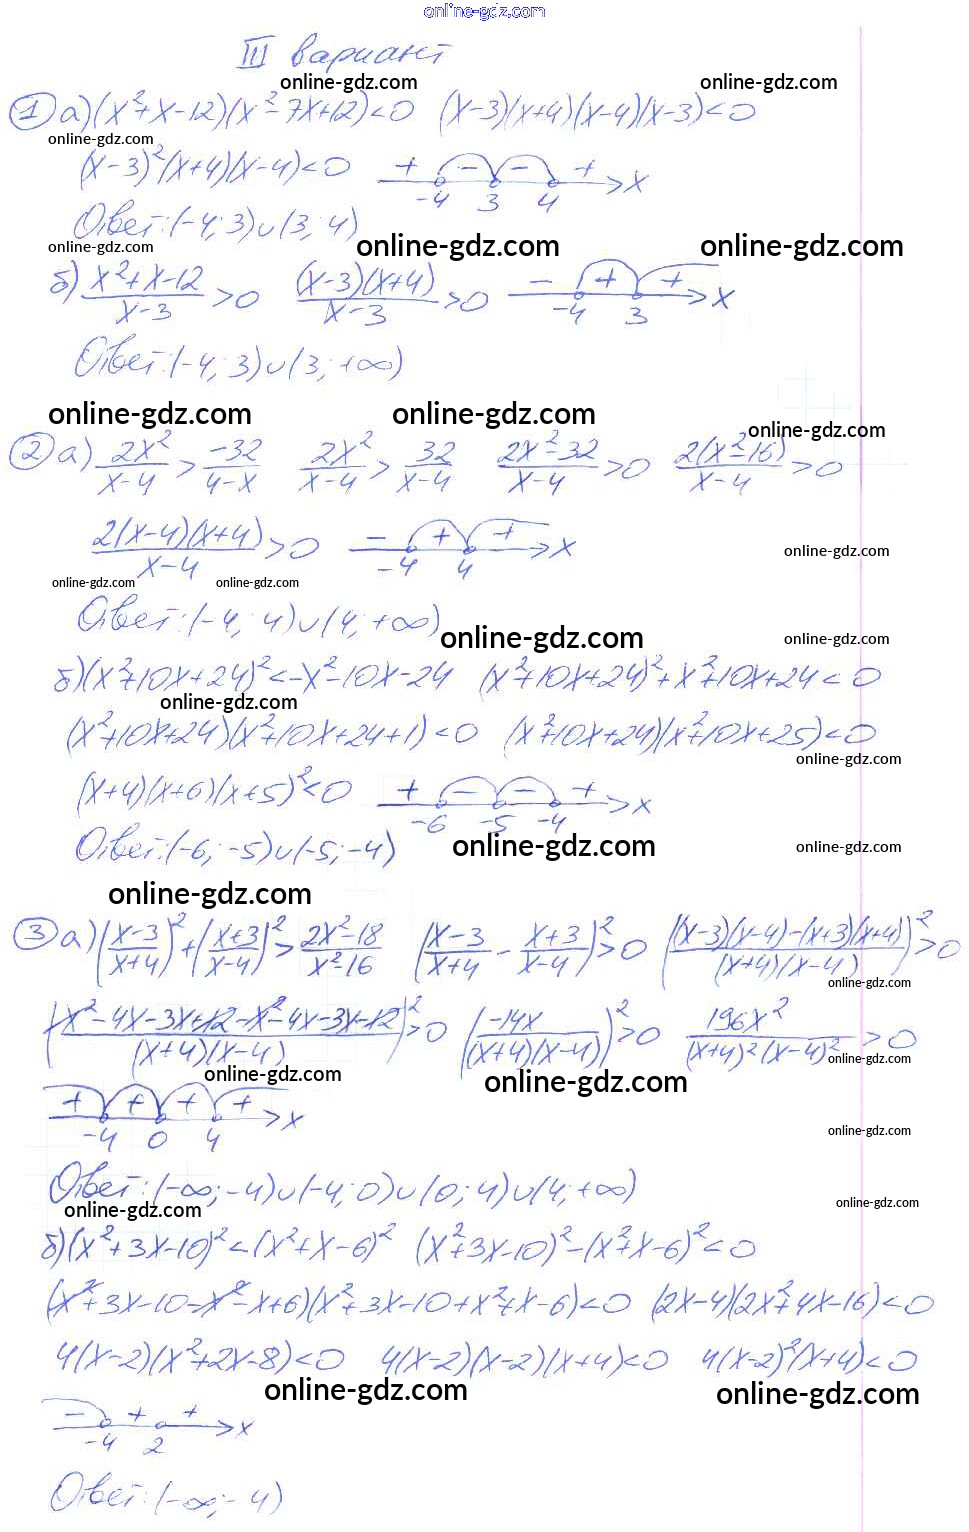 online-gdz.com
III вариант
online-gdz.com online-gdz.com
① а) (x²+x-12)(x²-7x+12)<0 (x-3)(x+4)(x-4)(x-3)<0
online-gdz.com
(x-3)²(x+4)(x-4)<0 + - - + x
-4 3 4
Ответ: (-4; 3)∪(3; 4)
online-gdz.com online-gdz.com online-gdz.com
б) (x²+x-12)/(x-3) >0 ((x-3)(x+4))/(x-3) >0 - + + x
-4 3
Ответ: (-4; 3)∪(3; +∞)
online-gdz.com online-gdz.com online-gdz.com
② а) 2x²/(x-4) > -32/(4-x) 2x²/(x-4) > 32/(x-4) (2x²-32)/(x-4) >0 2(x²-16)/(x-4) >0
2(x-4)(x+4)/(x-4) >0 - + + x
-4 4
online-gdz.com
online-gdz.com online-gdz.com
Ответ: (-4; 4)∪(4; +∞)
online-gdz.com online-gdz.com
б) (x²+10x+24)²<-x²-10x-24 (x²+10x+24)²+x²+10x+24<0
online-gdz.com
(x²+10x+24)(x²+10x+24+1)<0 (x²+10x+24)(x²+10x+25)<0
online-gdz.com
(x+4)(x+6)(x+5)²<0 + - - + x
-6 -5 -4
Ответ: (-6; -5)∪(-5; -4)
online-gdz.com online-gdz.com
online-gdz.com
③ а) ((x-3)/(x+4))²+((x+3)/(x-4))²> (2x²-18)/(x²-16) ((x-3)/(x+4) - (x+3)/(x-4))²>0 (((x-3)(x-4)-(x+3)(x+4))/((x+4)(x-4)))²>0
online-gdz.com
((x²-4x-3x+12-x²-4x-3x-12)/((x+4)(x-4)))²>0 (-14x/((x+4)(x-4)))²>0 196x²/((x+4)²(x-4)²) >0
online-gdz.com
online-gdz.com online-gdz.com
+ + + + x
-4 0 4
online-gdz.com
Ответ: (-∞; -4)∪(-4; 0)∪(0; 4)∪(4; +∞)
online-gdz.com online-gdz.com
б) (x²+3x-10)²<(x²+x-6)² (x²+3x-10)²-(x²+x-6)²<0
(x²+3x-10-x²-x+6)(x²+3x-10+x²+x-6)<0 (2x-4)(2x²+4x-16)<0
4(x-2)(x²+2x-8)<0 4(x-2)(x-2)(x+4)<0 4(x-2)²(x+4)<0
online-gdz.com online-gdz.com
- + + x
-4 2
Ответ: (-∞; -4)